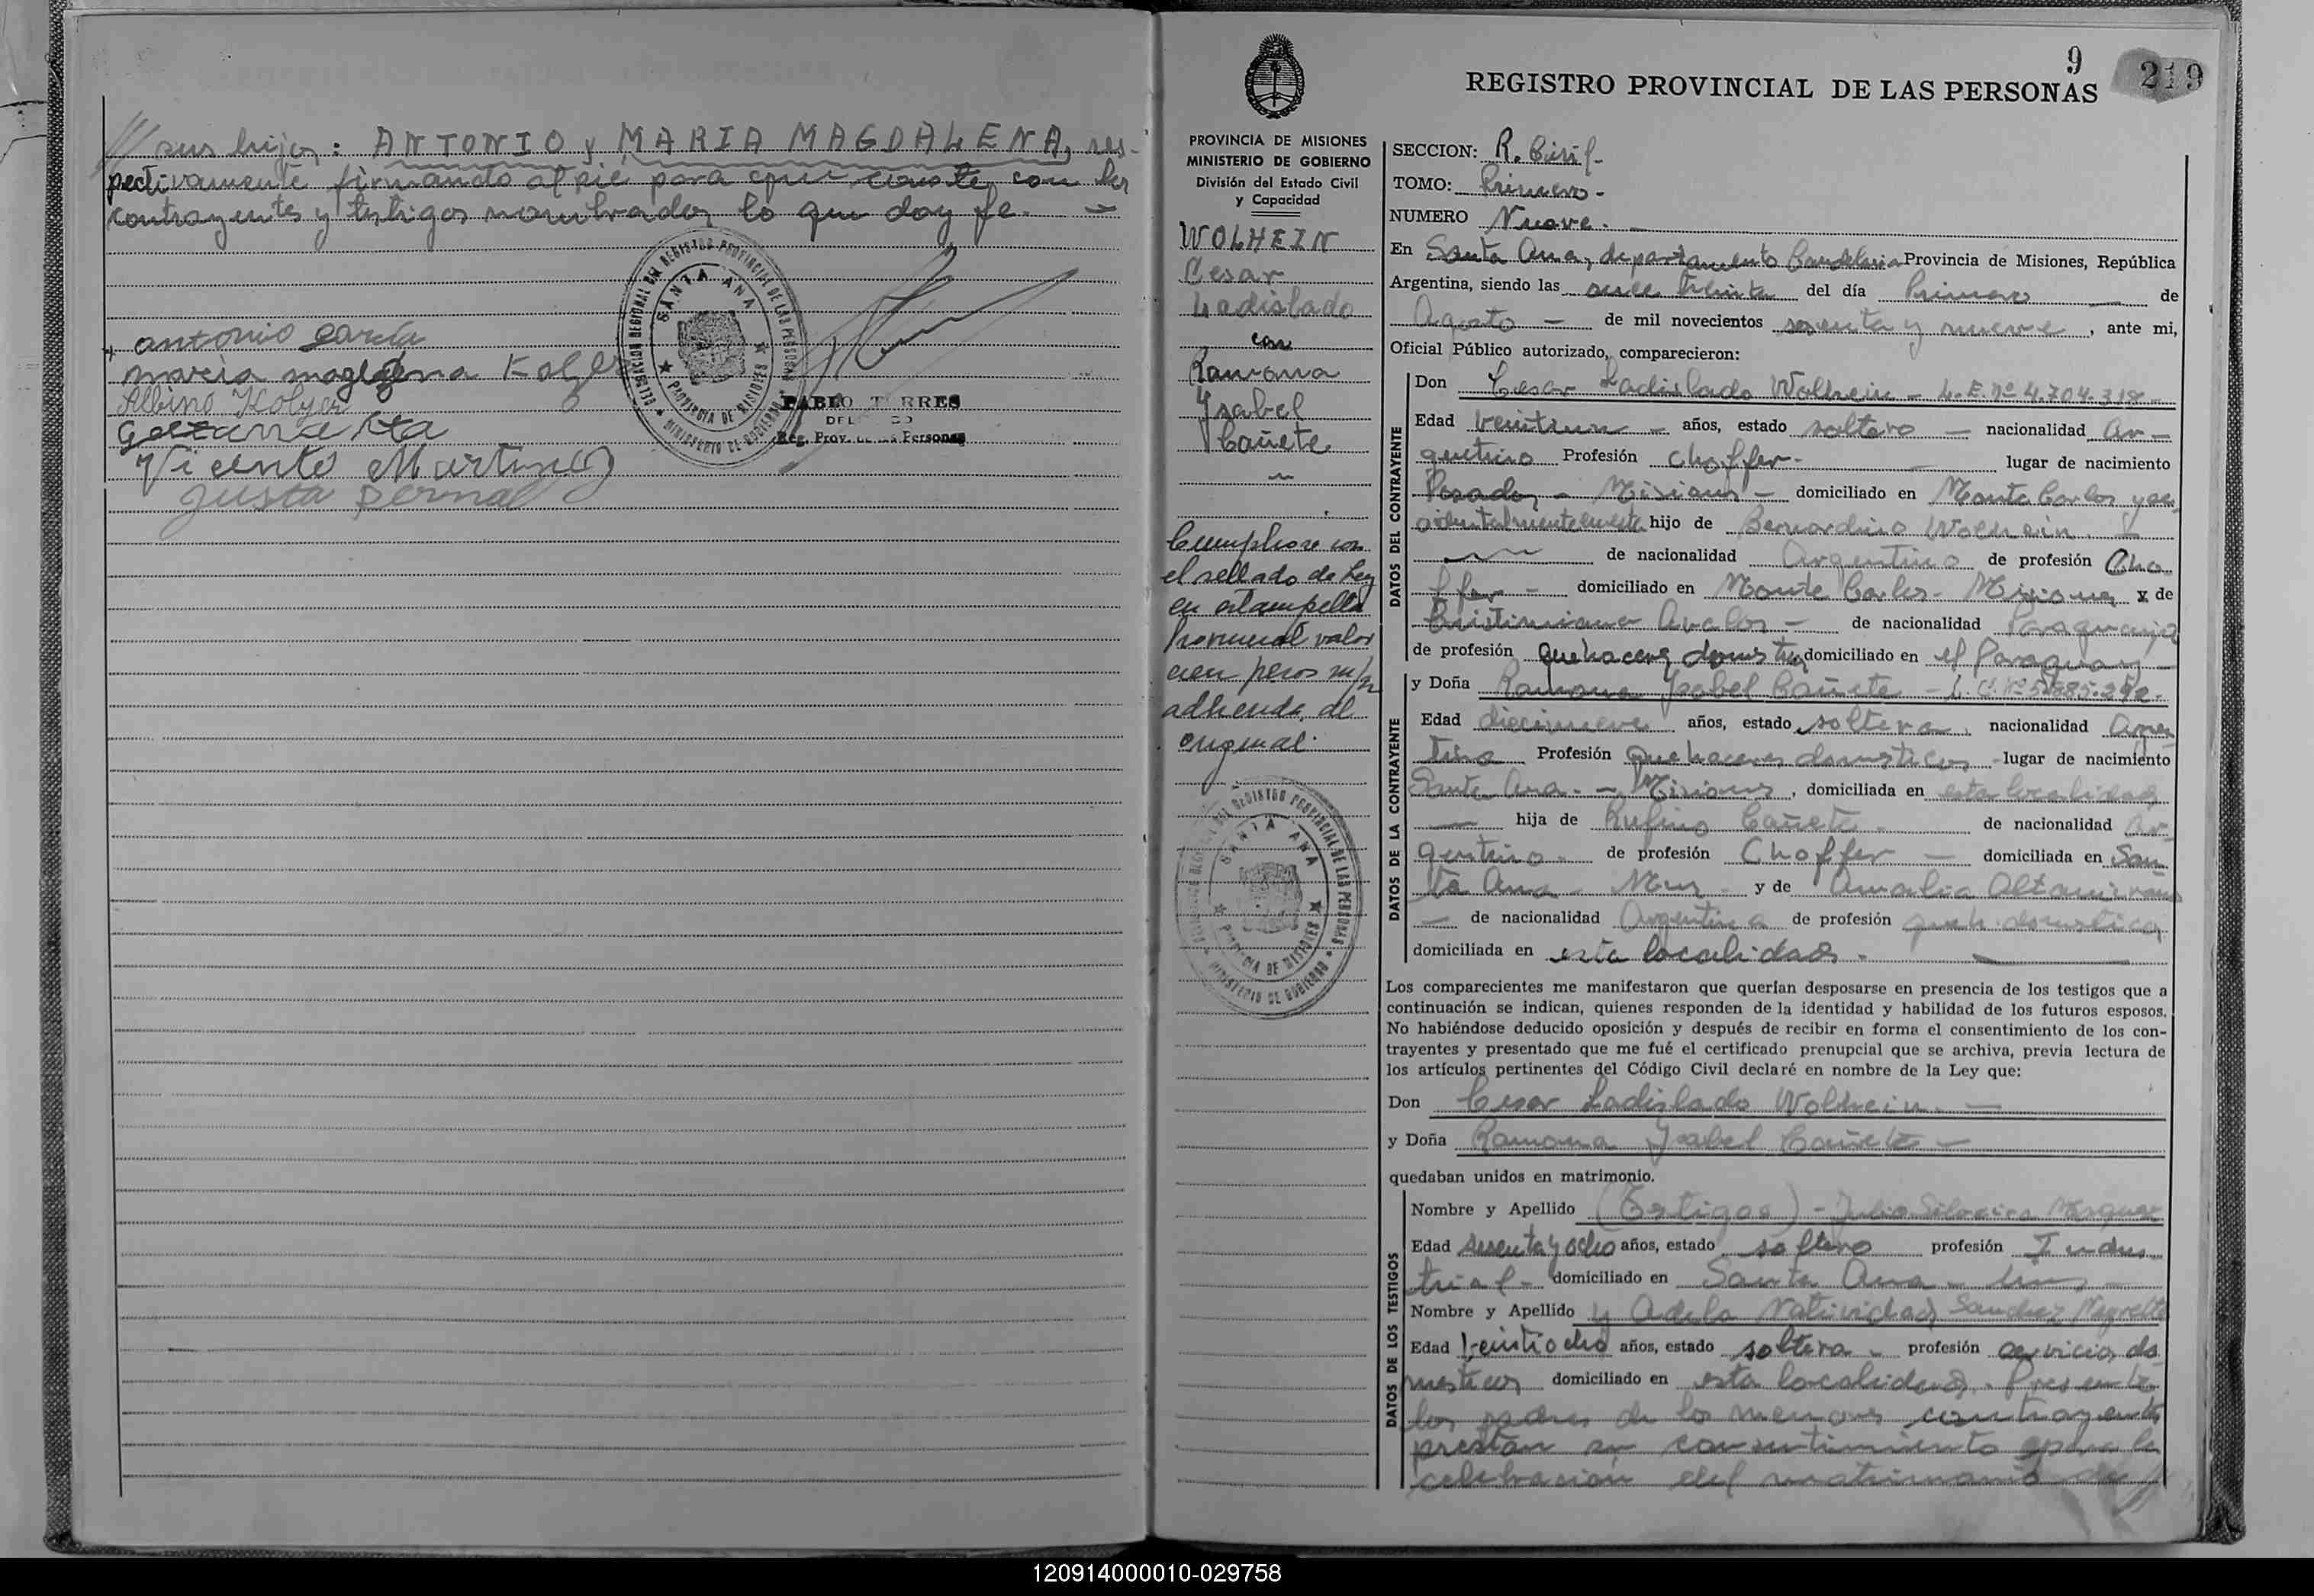 /// sus hijos: ANTONIO y MARIA MAGDALENA, res-
pectivamente firmando al pié para que conste, con los
contrayentes y testigos nombrados, lo que doy fe. —
antonio garcía
maria magdalena Kolyer
Albino Kolyer
Vicente Martinez
justa bernal
DELEGACION REGIONAL DEL REGISTRO PROVINCIAL DE LAS PERSONAS
SANTA ANA
PROVINCIA DE MISIONES
MINISTERIO DE GOBIERNO
PABLO TORRES
Reg. Prov. de las Personas
PROVINCIA DE MISIONES
MINISTERIO DE GOBIERNO
División del Estado Civil
y Capacidad
WOLHEIN
Cesar
Ladislado
con
Ramona
Ysabel
Cañete
Cumplese con
el sellado de Ley
en estampilla
Provincial valor
cien pesos m/n
adherida al
original.
DELEGACION REGIONAL DEL REGISTRO PROVINCIAL DE LAS PERSONAS
SANTA ANA
PROVINCIA DE MISIONES
MINISTERIO DE GOBIERNO
9
219
REGISTRO PROVINCIAL DE LAS PERSONAS
SECCION: R. Civil-
TOMO: Primero-
NUMERO Nueve.
En Santa Ana, departamento Candelaria Provincia de Misiones, República
Argentina, siendo las once treinta del día Primero — de
Agosto — de mil novecientos sesenta y nueve, ante mi,
Oficial Público autorizado, comparecieron:
DATOS DEL CONTRAYENTE
Don Cesar Ladislado Wolhein - L.E. nº 4.704.318-
Edad veintiun — años, estado soltero — nacionalidad Ar-
gentino Profesión Choffer- lugar de nacimiento
Posadas - Misiones - domiciliado en Monte Carlos y ac-
cidentalmente en esta hijo de Bernardino Wolhein.
de nacionalidad Argentino de profesión Cho-
ffer - domiciliado en Monte Carlos- Misiones y de
Cristiniana Avalos - de nacionalidad Paraguaya
de profesión quehaceres domesticos domiciliado en el Paraguay -
DATOS DE LA CONTRAYENTE
y Doña Ramona Ysabel Cañete - L.C. nº 5.885.292.
Edad diecinueve años, estado soltera nacionalidad Argen-
tina Profesión Quehaceres domesticos - lugar de nacimiento
Santa Ana. - Misiones, domiciliada en esta localidad
— hija de Rufino Cañete - de nacionalidad Ar-
gentino- de profesión Choffer — domiciliada en San-
ta Ana - Mnes - y de Amalia Altamirano
— de nacionalidad Argentina de profesión queh. domesticos
domiciliada en esta localidad.
Los comparecientes me manifestaron que querían desposarse en presencia de los testigos que a
continuación se indican, quienes responden de la identidad y habilidad de los futuros esposos.
No habiéndose deducido oposición y después de recibir en forma el consentimiento de los con-
trayentes y presentado que me fué el certificado prenupcial que se archiva, previa lectura de
los artículos pertinentes del Código Civil declaré en nombre de la Ley que:
Don Cesar Ladislado Wolhein. —
y Doña Ramona Ysabel Cañete -
quedaban unidos en matrimonio.
DATOS DE LOS TESTIGOS
Nombre y Apellido (Testigos) - Julio Silveira Marquez
Edad sesenta y ocho años, estado soltero profesión Indus
trial- domiciliado en Santa Ana -
Nombre y Apellido y Adela Natividad Sanchez Negrette
Edad veintiocho años, estado soltera - profesión servicios do
mesticos domiciliado en esta localidad. Presente
los padres de los menores contrayentes
prestan su consentimiento para la
celebración del matrimonio de //
120914000010-029758